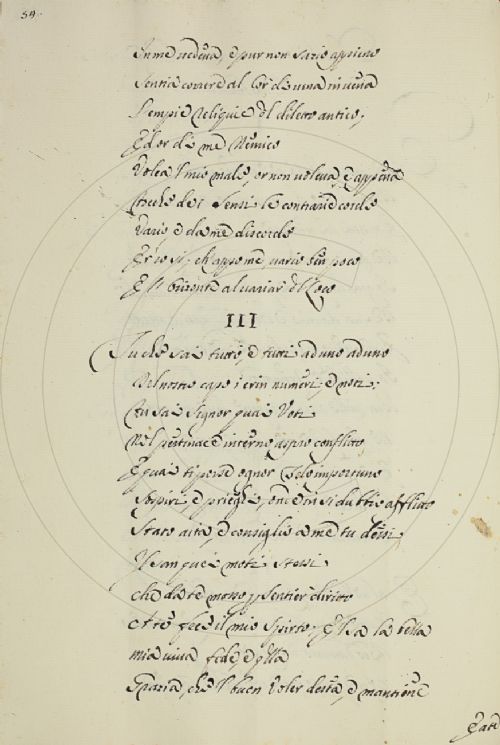 59.
In me vedeva, e pur non sazio appieno
Sentia correr al Cor di vena in vena
L'empie Reliquie del diletto antico;
Ed or di me Nemico
Volea l'mio male, or non voleva, e appena
che dei Sensi le contrarie corde
Vario e da me discorde
Er'io sì, ch'appo me, vario fia poco
E il
III
Tu che sai tutti, e tutti ad uno ad uno
Del nostro capo i crin numeri, e noti;
Tu sai Signor quai Voti
Nel pertinace interno aspro conflitto,
E quai ti porsi ognor Zelo importuno
Sospiri, e prieghi, onde in sì dubbio afflitto
Stato aita, e consiglio a me tu dessi
Il san quei moti stessi
che da te mosso, per sentier diritto
A te feo il mio Spirto, E il sa la bella
mia viva fede, e quella
Grazia, che l'buon Voler desta, e mantiene